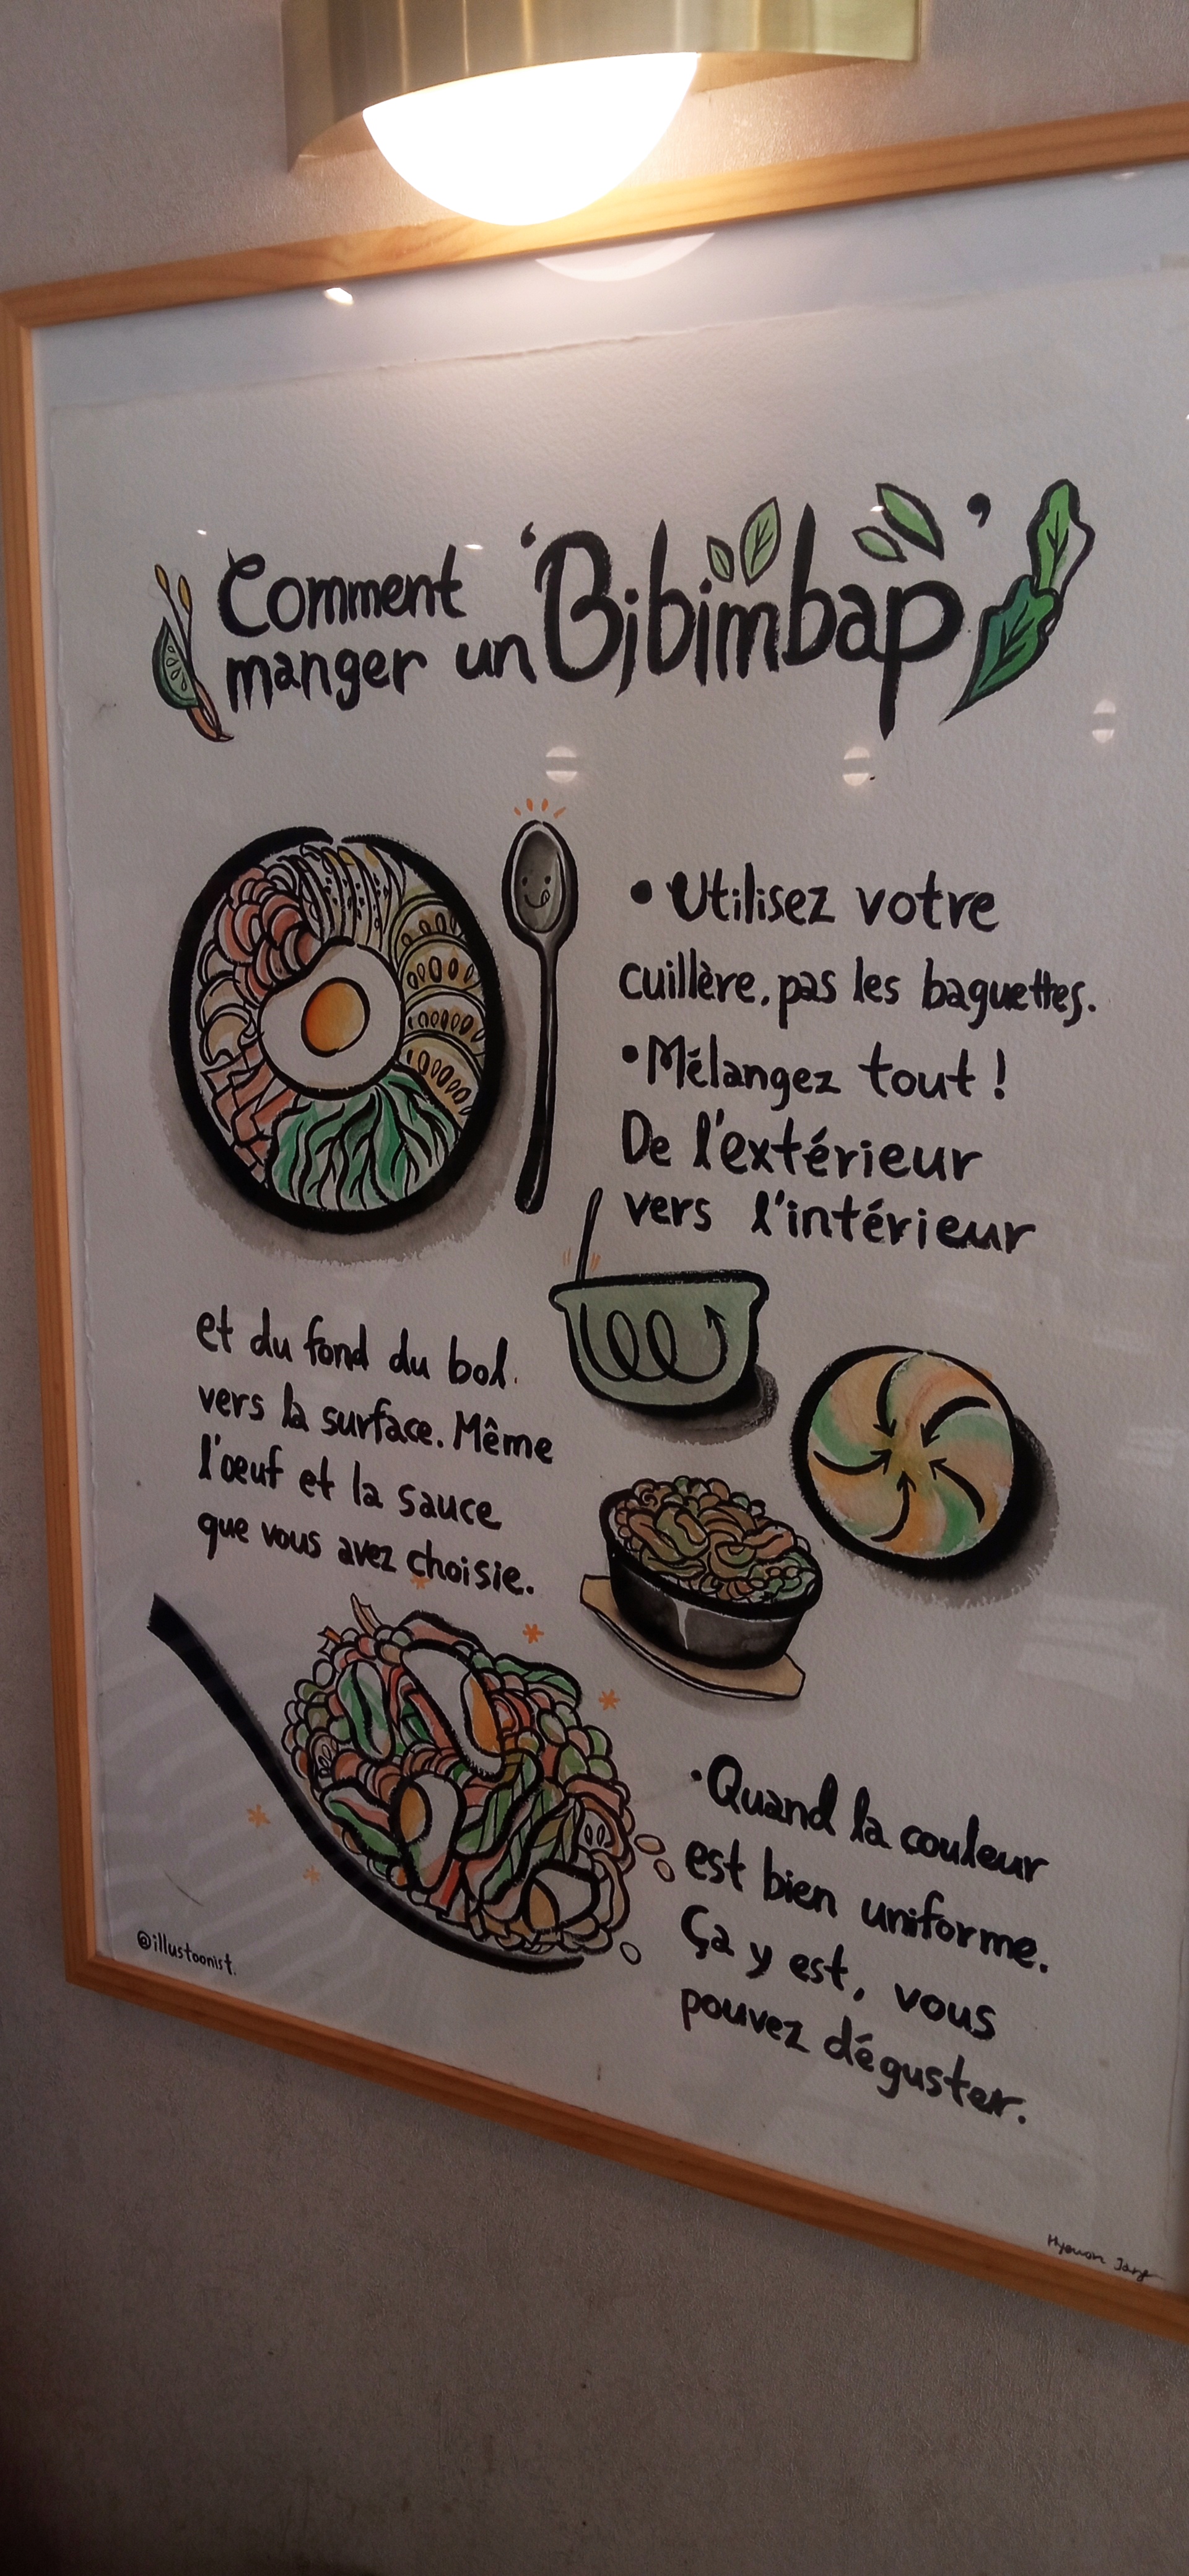 Comment
manger un 'Bibimbap'
• Utilisez votre
cuillère, pas les baguettes.
• Mélangez tout !
De l'extérieur
vers l'intérieur
et du fond du bol
vers la surface. Même
l'œuf et la sauce
que vous avez choisie.
• Quand la couleur
est bien uniforme.
Ça y est, vous
pouvez déguster.
@illustoonist.
Hyewon Jang